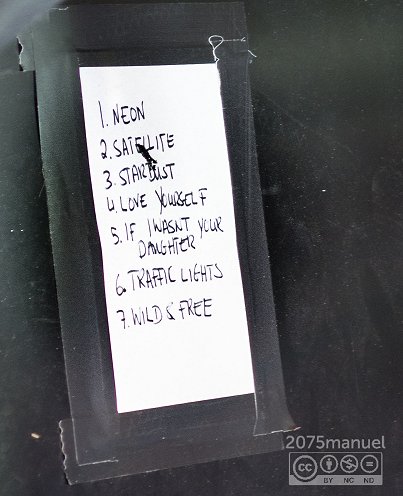 1. NEON
2. SATELLITE
3. STARDUST
4. LOVE YOURSELF
5. IF I WASNT YOUR
DAUGHTER
6. TRAFFIC LIGHTS
7. WILD & FREE
2075manuel
cc
BY NC ND